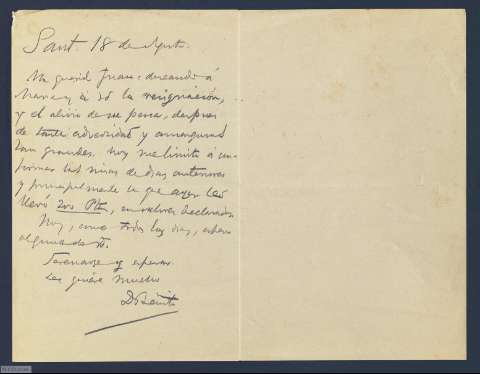 Sant. 18 de Agosto.
Mi querid Juan: deseando á
y á V. la resignación,
y el alivio de su pena, despues
de tanta adversidad y amarguras
tan grandes. Hoy me limito á con-
firmar las mias de dias anteriores
y principalmente la que ayer les
llevó 200 Ptas, en valores declarados
Hoy, como todos los dias, espero
alguna de V.
Serenarse y esperar.
Les quiere mucho
D. Benito